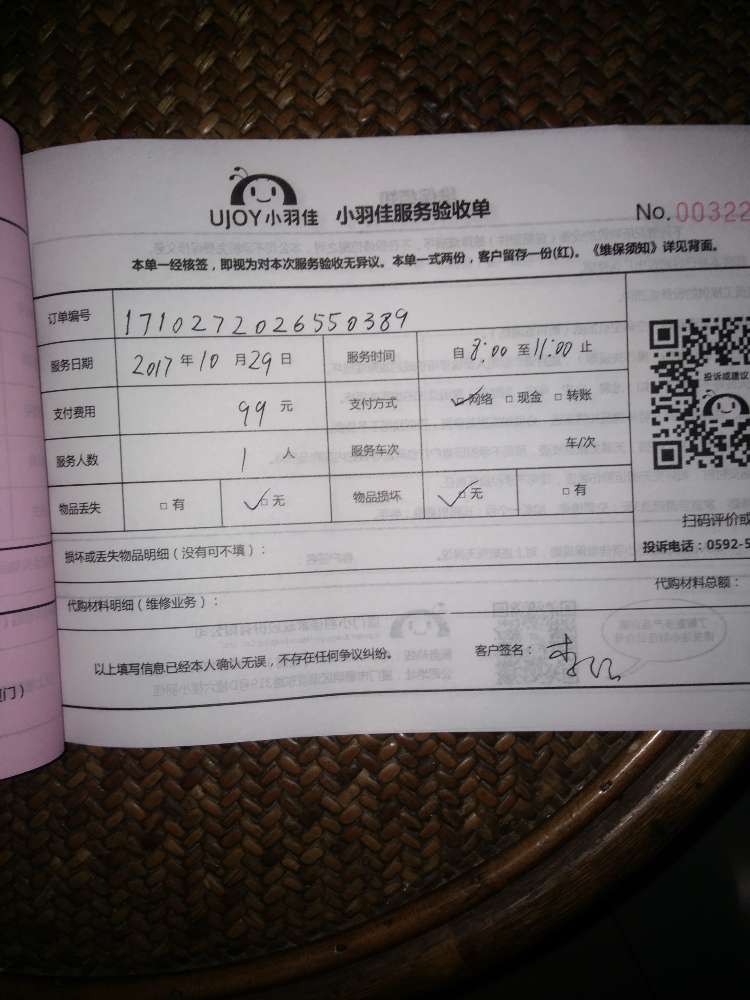 UJOY小羽佳 小羽佳服务验收单 No.00322
本单一经核签，即视为对本次服务验收无异议。本单一式两份，客户留存一份(红)。《维保须知》详见背面。
订单编号 1710272026550389
服务日期 2017年10月29日 服务时间 自8:00至11:00止
投诉或建议
支付费用 99元 支付方式 ☑网络 □现金 □转账
服务人数 1人 服务车次 车/次
物品丢失 □有 ☑无 物品损坏 ☑无 □有
扫码评价或
损坏或丢失物品明细（没有可不填）：
投诉电话：0592-5
代购材料明细（维修业务）：
代购材料总额：
以上填写信息已经本人确认无误，不存在任何争议纠纷。 客户签名：
门）